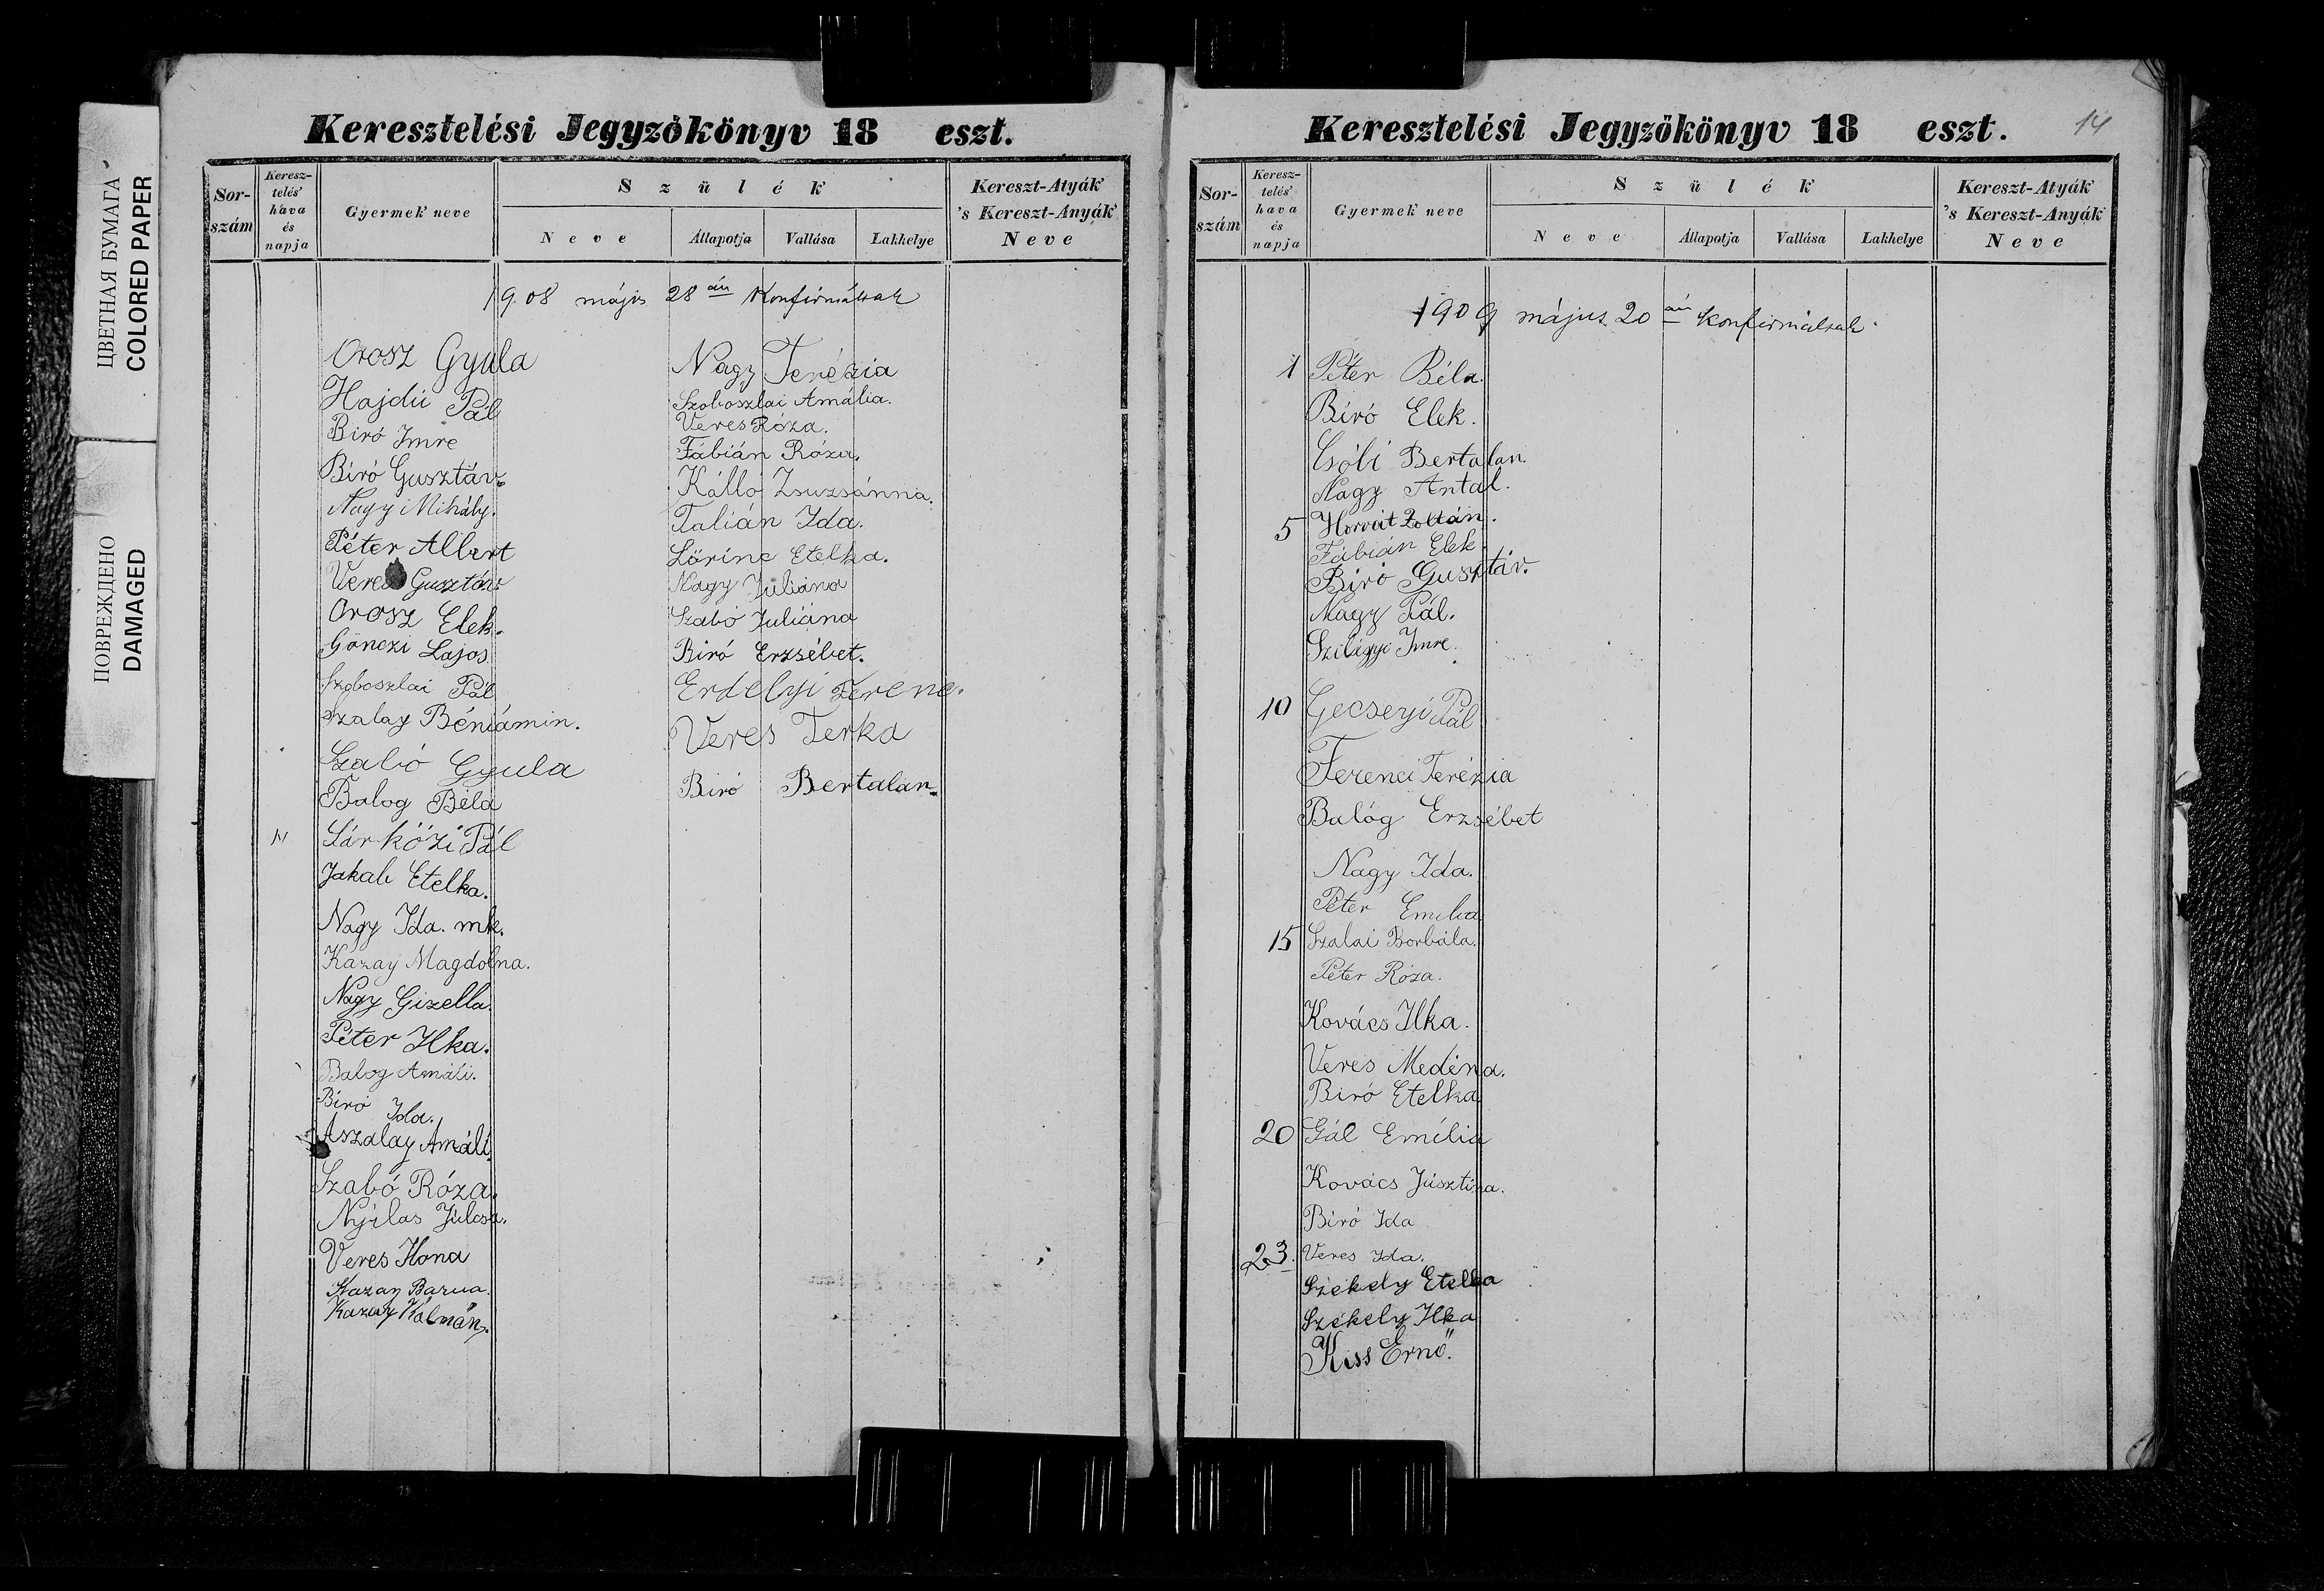 ЦВЕТНАЯ БУМАГА
COLORED PAPER
ПОВРЕЖДЕНО
DAMAGED
Keresztelési Jegyzőkönyv 18 eszt.
Sor-szám
Keresz-telés' hava és napja
Gyermek' neve
Szülék'
Neve
Állapotja
Vallása
Lakhelye
Kereszt-Atyák' 's Kereszt-Anyák' Neve
1908 május 28 án Konfirmáltak
Orosz Gyula
Hajdú Pál
Biró Imre
Biró Gusztáv
Nagy Mihály.
Péter Albert
Veres Gusztáv
Orosz Elek.
Gönczi Lajos
Szoboszlai Pál
Szalay Béniámin.
Szabó Gyula
Balog Béla
14 Sárközi Pál
Jakab Etelka.
Nagy Ida. mk.
Kázay Magdolna.
Nagy Gizella.
Péter Ilka.
Balog Amáli.
Biró Ida.
Aszalay Amáli.
Szabó Róza.
Nyilas Julcsa.
Veres Ilona
Kazay Barna.
Kazay Kálmán.
Nagy Terézia
Szoboszlai Amália.
Veres Róza.
Fábián Róza.
Kálló Zsuzsánna.
Talián Ida.
Lőrinc Etelka.
Nagy Juliána
Szabó Juliána
Biró Erzsébet.
Erdélyi Ferenc.
Veres Terka
Biró Bertalan.
Keresztelési Jegyzőkönyv 18 eszt.
14
Sor-szám
Keresz-telés' hava és napja
Gyermek' neve
Szülék'
Neve
Állapotja
Vallása
Lakhelye
Kereszt-Atyák' 's Kereszt-Anyák' Neve
1909 május 20 án Konfirmáltak
1 Péter Béla.
Biró Elek.
Csóli Bertalan.
Nagy Antal.
5 Horvát Zoltán.
Fábián Elek
Biró Gusztáv.
Nagy Pál.
Szilágyi Imre.
10 Gecseyi Pál
Ferenci Terézia
Balóg Erzsébet
Nagy Ida.
Péter Emilia
15 Szalai Borbála.
Péter Róza.
Kovács Ilka.
Veres Medéna.
Biró Etelka
20 Gál Emília
Kovács Jusztina.
Biró Ida
23. Veres Ida.
Székely Etelka
Székely Ilka
Kiss Ernő.